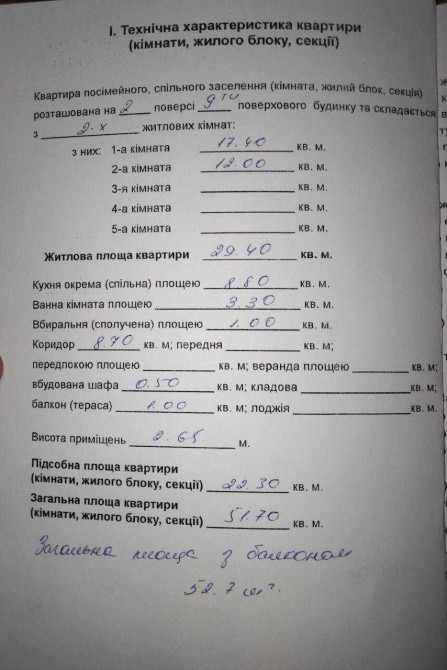 І. Технічна характеристика квартири
(кімнати, жилого блоку, секції)
Квартира посімейного, спільного заселення (кімната, жилий блок, секція)
розташована на 2 поверсі 9ти поверхового будинку та складається
з 2-х житлових кімнат:
з них: 1-а кімната 17.40 кв. м.
2-а кімната 12.00 кв. м.
3-я кімната кв. м.
4-а кімната кв. м.
5-а кімната кв. м.
Житлова площа квартири 29.40 кв. м.
Кухня окрема (спільна) площею 8.80 кв. м.
Ванна кімната площею 3.30 кв. м.
Вбиральня (сполучена) площею 1.00 кв. м.
Коридор 8.70 кв. м; передня кв. м;
передпокою площею кв. м; веранда площею кв. м;
вбудована шафа 0.50 кв. м; кладова кв. м;
балкон (тераса) 1.00 кв. м; лоджія кв. м.
Висота приміщень 2.65 м.
Підсобна площа квартири
(кімнати, жилого блоку, секції) 22.30 кв. м.
Загальна площа квартири
(кімнати, жилого блоку, секції) 51.70 кв. м.
Загальна площа з балконом
52.7 м².